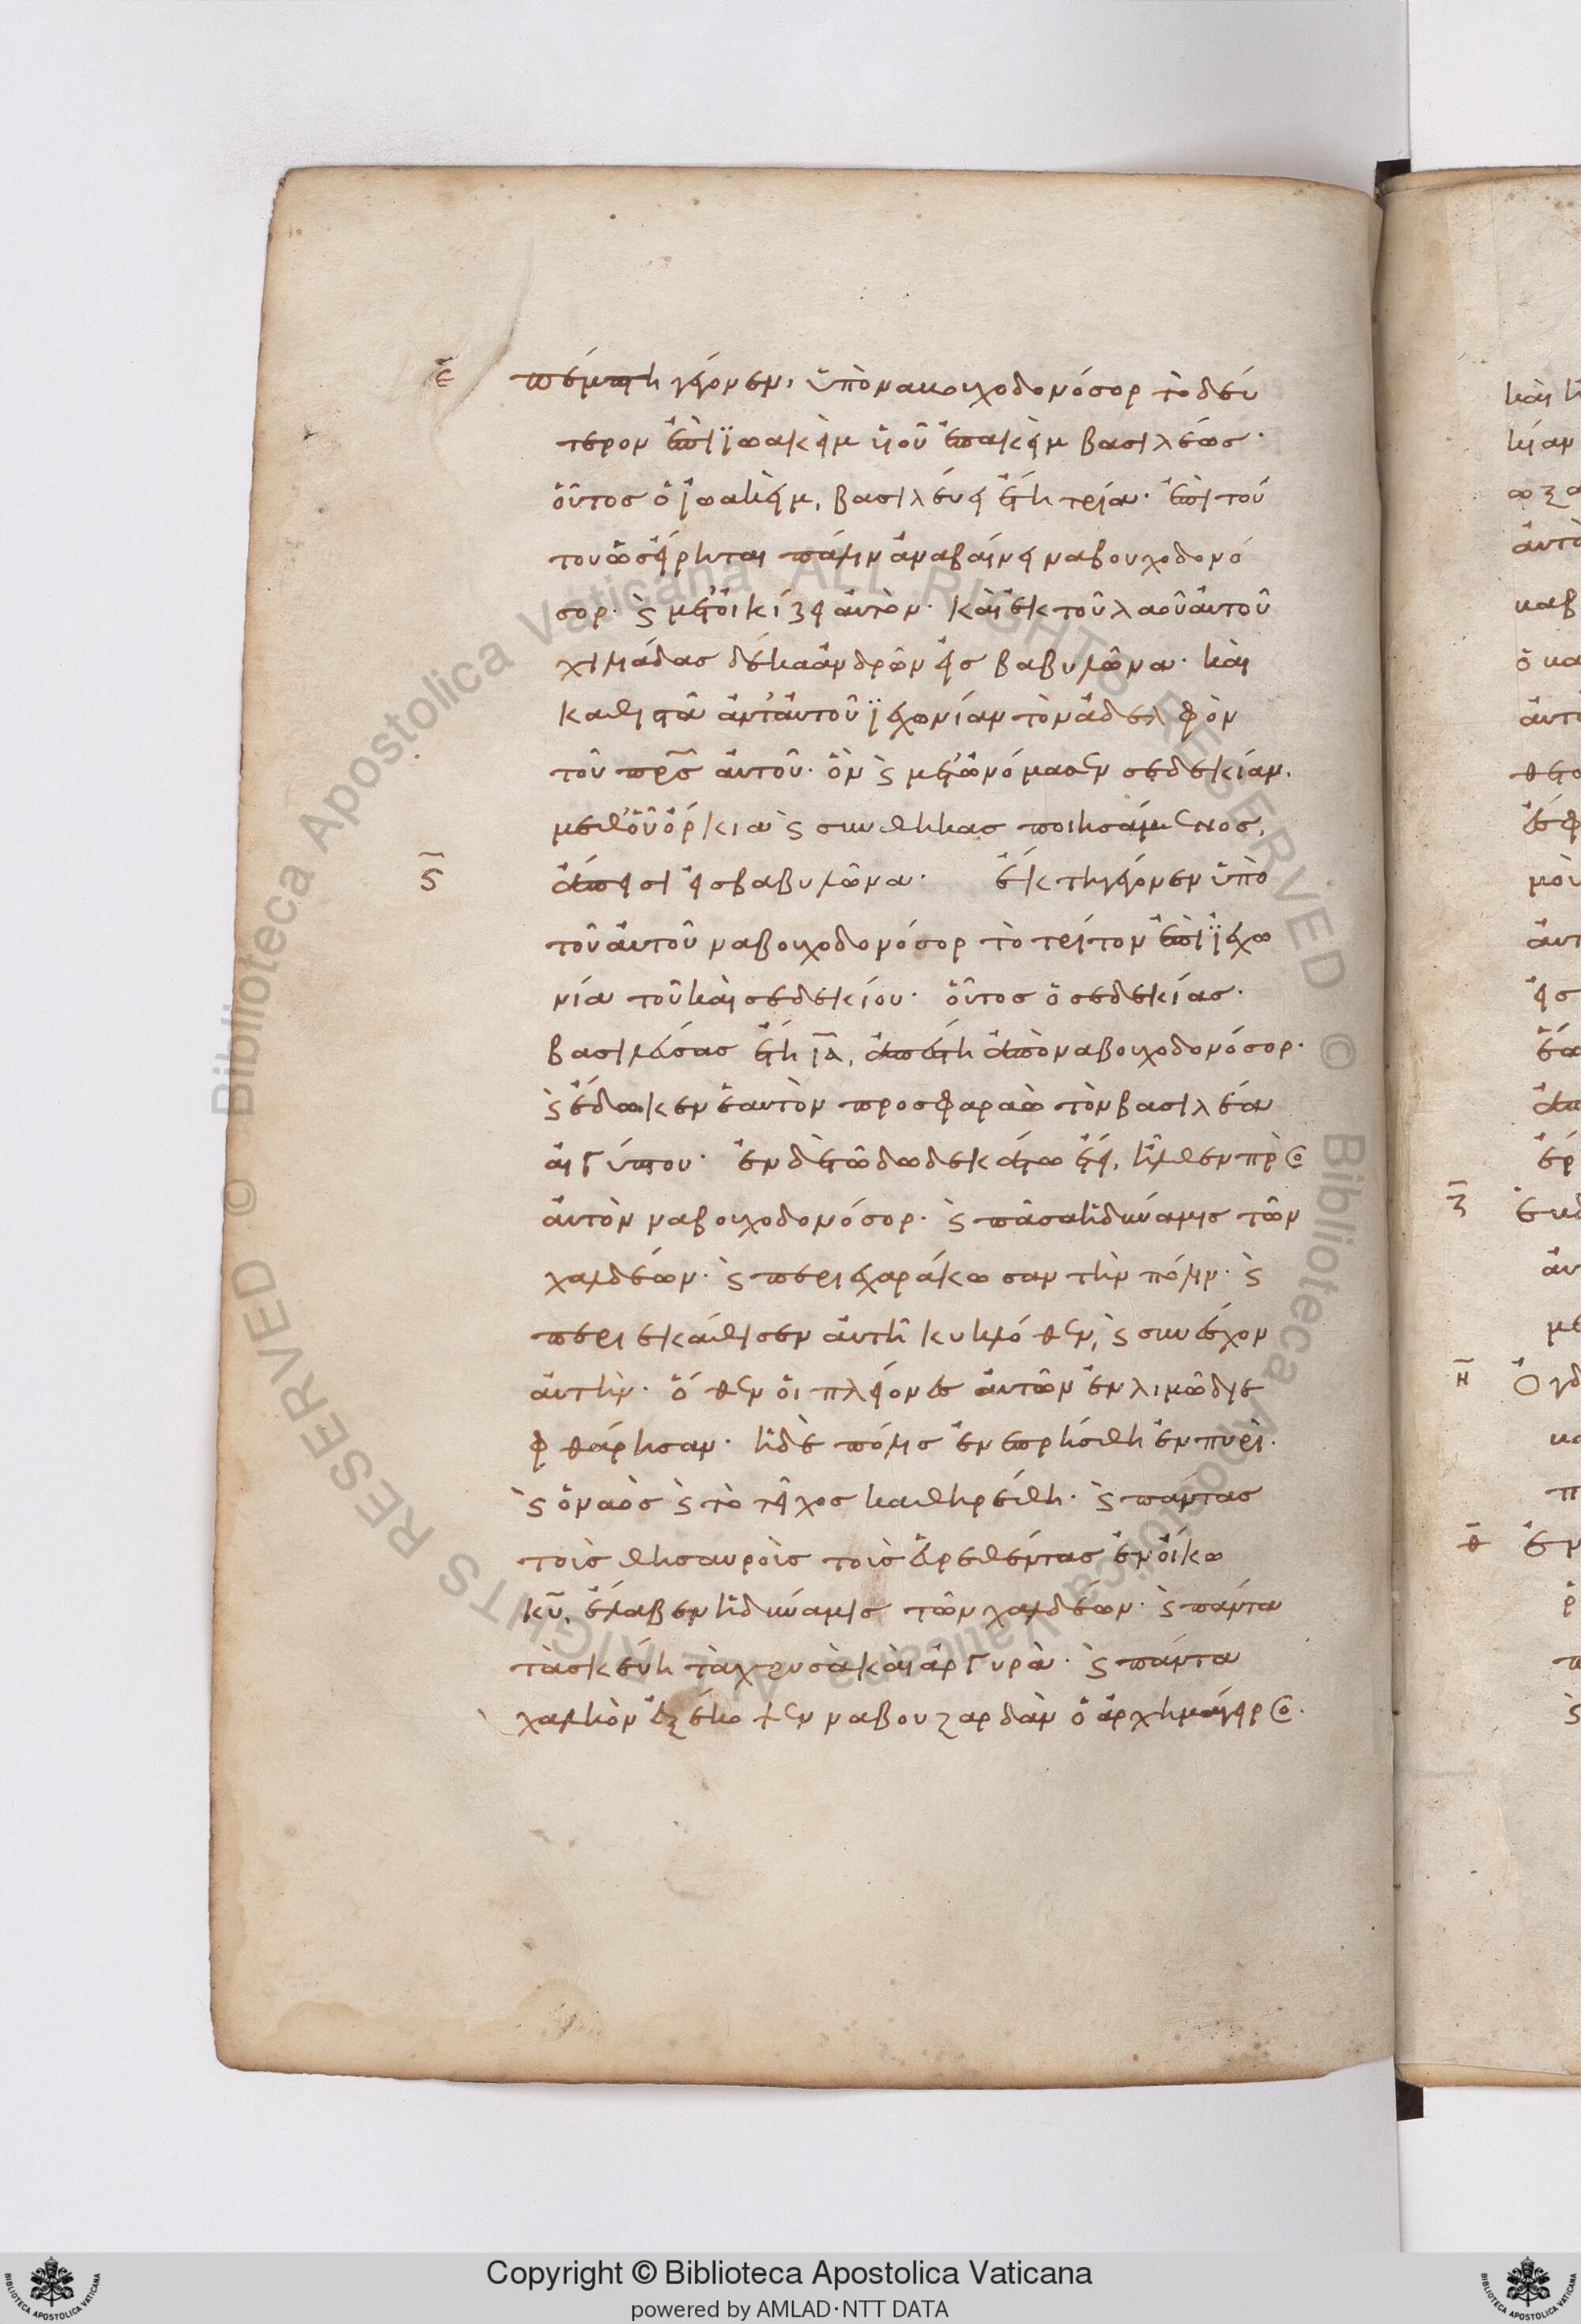 ε̄ πέμπτη γέγονεν, ὑπὸ ναβουχοδονόσορ τὸ δεύ
τερον ἐπὶ ϊωακεὶμ υἱοῦ ἐπακεὶμ βασιλέως·
οὗτος ὁ ϊωακεὶμ, βασιλεύει ἔτη τρία· ἐπὶ τού
του ὡς εἴρηται πάλιν ἀναβαίνει ναβουχοδονό
σορ· ϗ μετοικίζει αὐτὸν· καὶ ἐκ τοῦ λαοῦ αὐτοῦ
χιλιάδας δέκα ἀνδρῶν εἰς βαβυλῶνα· καὶ
καθιστᾶ ἀντ' αὐτοῦ ϊεχονίαν τὸν ἀδελφὸν
τοῦ πρ̅ς αὐτοῦ· ὃν ϗ μετωνόμασεν σεδεκίαν.
μεθ' οὗ ὅρκια ϗ συνθήκας ποιησάμενος,
ς̄ ἄπεισι εἰς βαβυλῶνα· ἕκτη γέγονεν ὑπὸ
τοῦ αὐτοῦ ναβουχοδονόσορ τὸ τρίτον ἐπὶ ϊεχω
νία τοῦ καὶ σεδεκίου· οὗτος ὁ σεδεκίας·
βασιλεύσας ἔτη ῑᾱ, ἀπέστη ἀπὸ ναβουχοδονόσορ·
ϗ ἔδωκεν ἑαυτὸν προς φαραὼ τὸν βασιλέα
αἰγύπτου· ἐν δὲ τῶ δωδεκάτω ἔτει, ἦλθεν πρὸς
αὐτὸν ναβουχοδονόσορ· ϗ πᾶσα ἡ δύναμις τῶν
χαλδέων· ϗ περιεχαράκωσαν τὴν πόλιν· ϗ
περιεκάθισεν αὐτῆ κυκλόθεν, ϗ συνεῖχον
αὐτὴν· ὅθεν οἱ πλείονες αὐτῶν ἐν λιμῶ διε
φθάρησαν· ἡ δὲ πόλις ἐνεπρήσθη ἐν πυρὶ·
ϗ ὁ ναὸς ϗ τὸ τεῖχος καθηρέθη· ϗ πάντας
τοὺς θησαυροὺς τοὺς εὑρεθέντας ἐν οἴκω
κ̅υ̅, ἔλαβεν ἡ δύναμις τῶν χαλδέων· ϗ πάντα
τὰ σκεύη τὰ χρυσὰ καὶ ἀργυρὰ· ϗ πάντα
χαλκὸν ἐξέκοψεν ναβουζαρδὰν ὁ ἀρχημάγειρος·
Copyright © Biblioteca Apostolica Vaticana
powered by AMLAD·NTT DATA